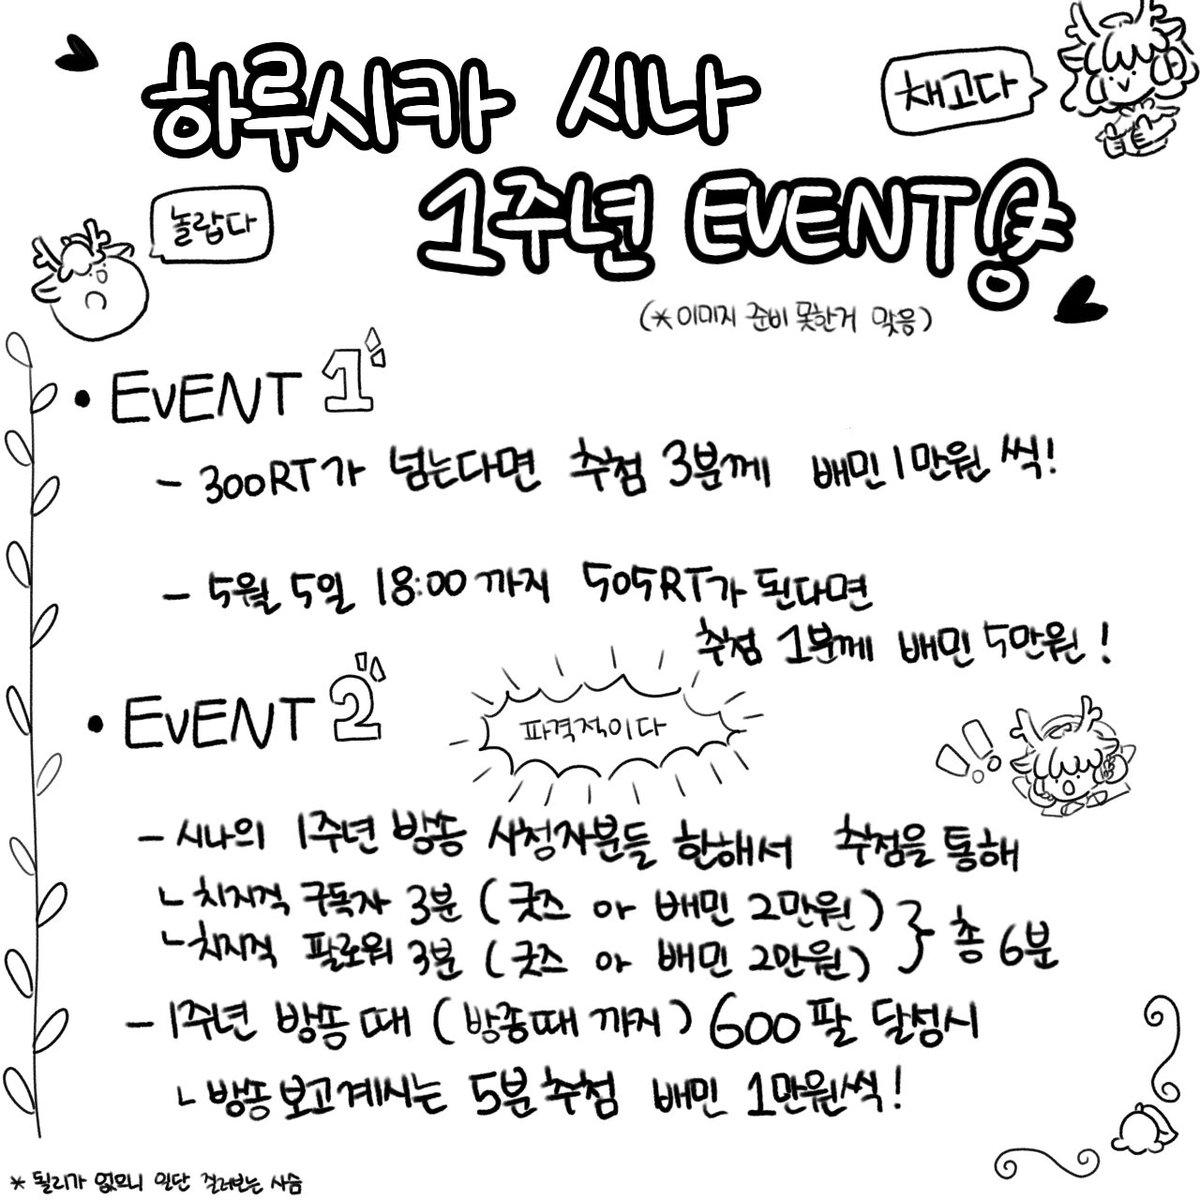 하루시카 시나
채고다
1주년 EVENT양
놀랍다
(*이미지 준비 못한거 맞음)
• EVENT 1
- 300RT가 넘는다면 추첨 3분께 배민 1만원 씩!
- 5월 5일 18:00 까지 505RT가 된다면
추첨 1분께 배민 5만원!
• EVENT 2
파격적이다
- 시나의 1주년 방송 시청자분들 한해서 추첨을 통해
ㄴ 치지직 구독자 3분 (굿즈 or 배민 2만원)
ㄴ 치지직 팔로워 3분 (굿즈 or 배민 2만원)
} 총 6분
- 1주년 방송 때 (방종때 까지) 600팔 달성시
ㄴ 방송보고계시는 5분 추첨 배민 1만원씩!
* 퀄리가 없으니 일단 걸러보는 사슴